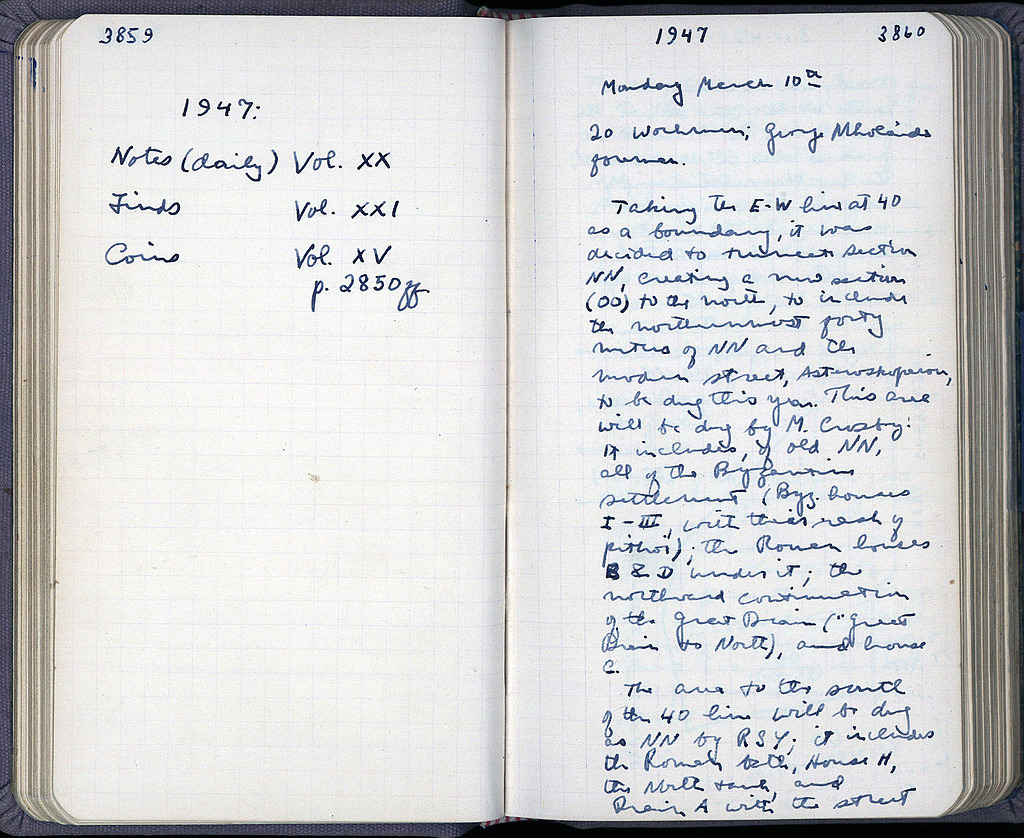 3859
1947:
Notes (daily) Vol. XX
Finds Vol. XXI
Coins Vol. XV
p. 2850ff
1947 3860
Monday March 10th
20 workmen; George
foreman.
Taking the E-W line at 40
as a boundary, it was
decided to truncate section
NN, creating a new section
(OO) to the north, to include
the northernmost forty
meters of NN and the
modern street, Asteroskopeiou,
to be dug this year. This area
will be dug by M. Crosby:
It includes, of old NN,
all of the Byzantine
settlement (Byz. houses
I-III, with their rash of
pithoi); the Roman houses
B & D under it; the
northward continuation
of the Great Drain ("Great
Drain to North), and house
C.
The area to the south
of the 40 line will be dug
as NN by RSY; it includes
the Roman bath, House H,
the and
Drain A with the street